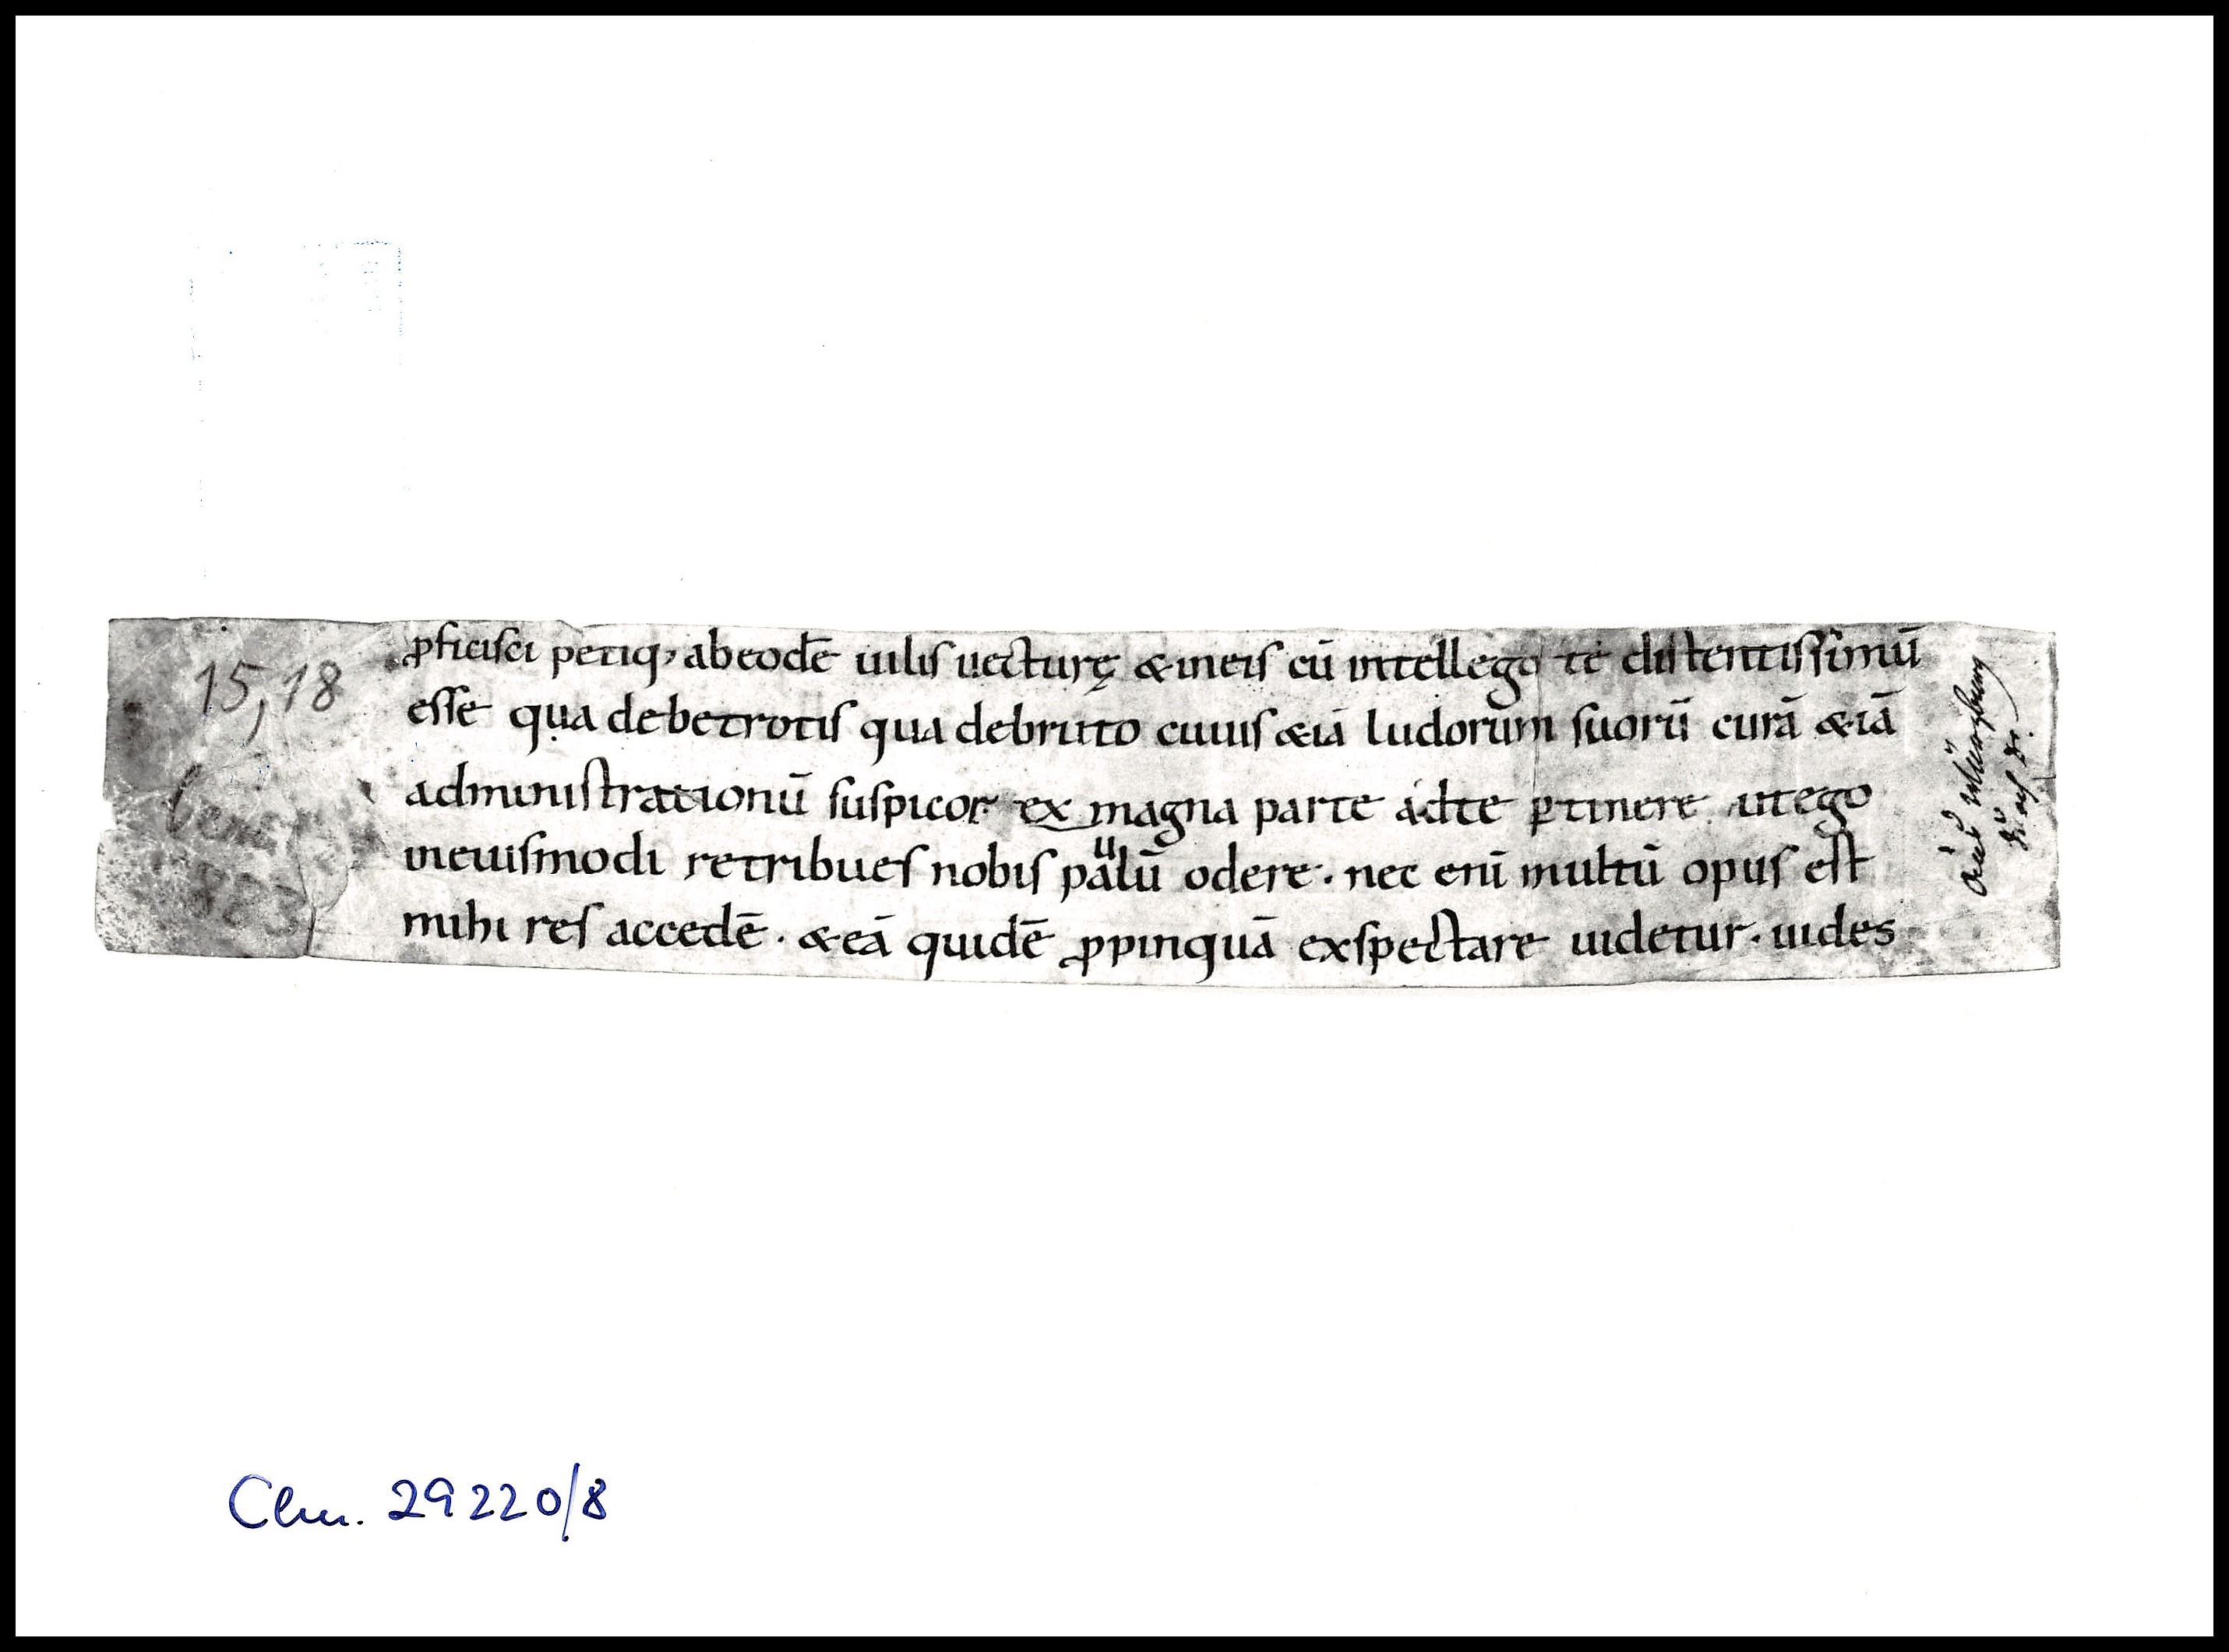 15,18
ꝓficisci petiq; abeodē iulis uecturę &meis cū intellego te distentissimū
esse qua debetrotis qua debruto cuius &iā ludorum suorū curā &iā
administrationū suspicor ex magna parte adte ꝑtinere utego
ineuismodi retribues nobis paulū odere · nec enī multū opus est
mihi res accedē · &eā quidē ꝓpinquā exspectare uidetur · uides
Clm. 29220/8